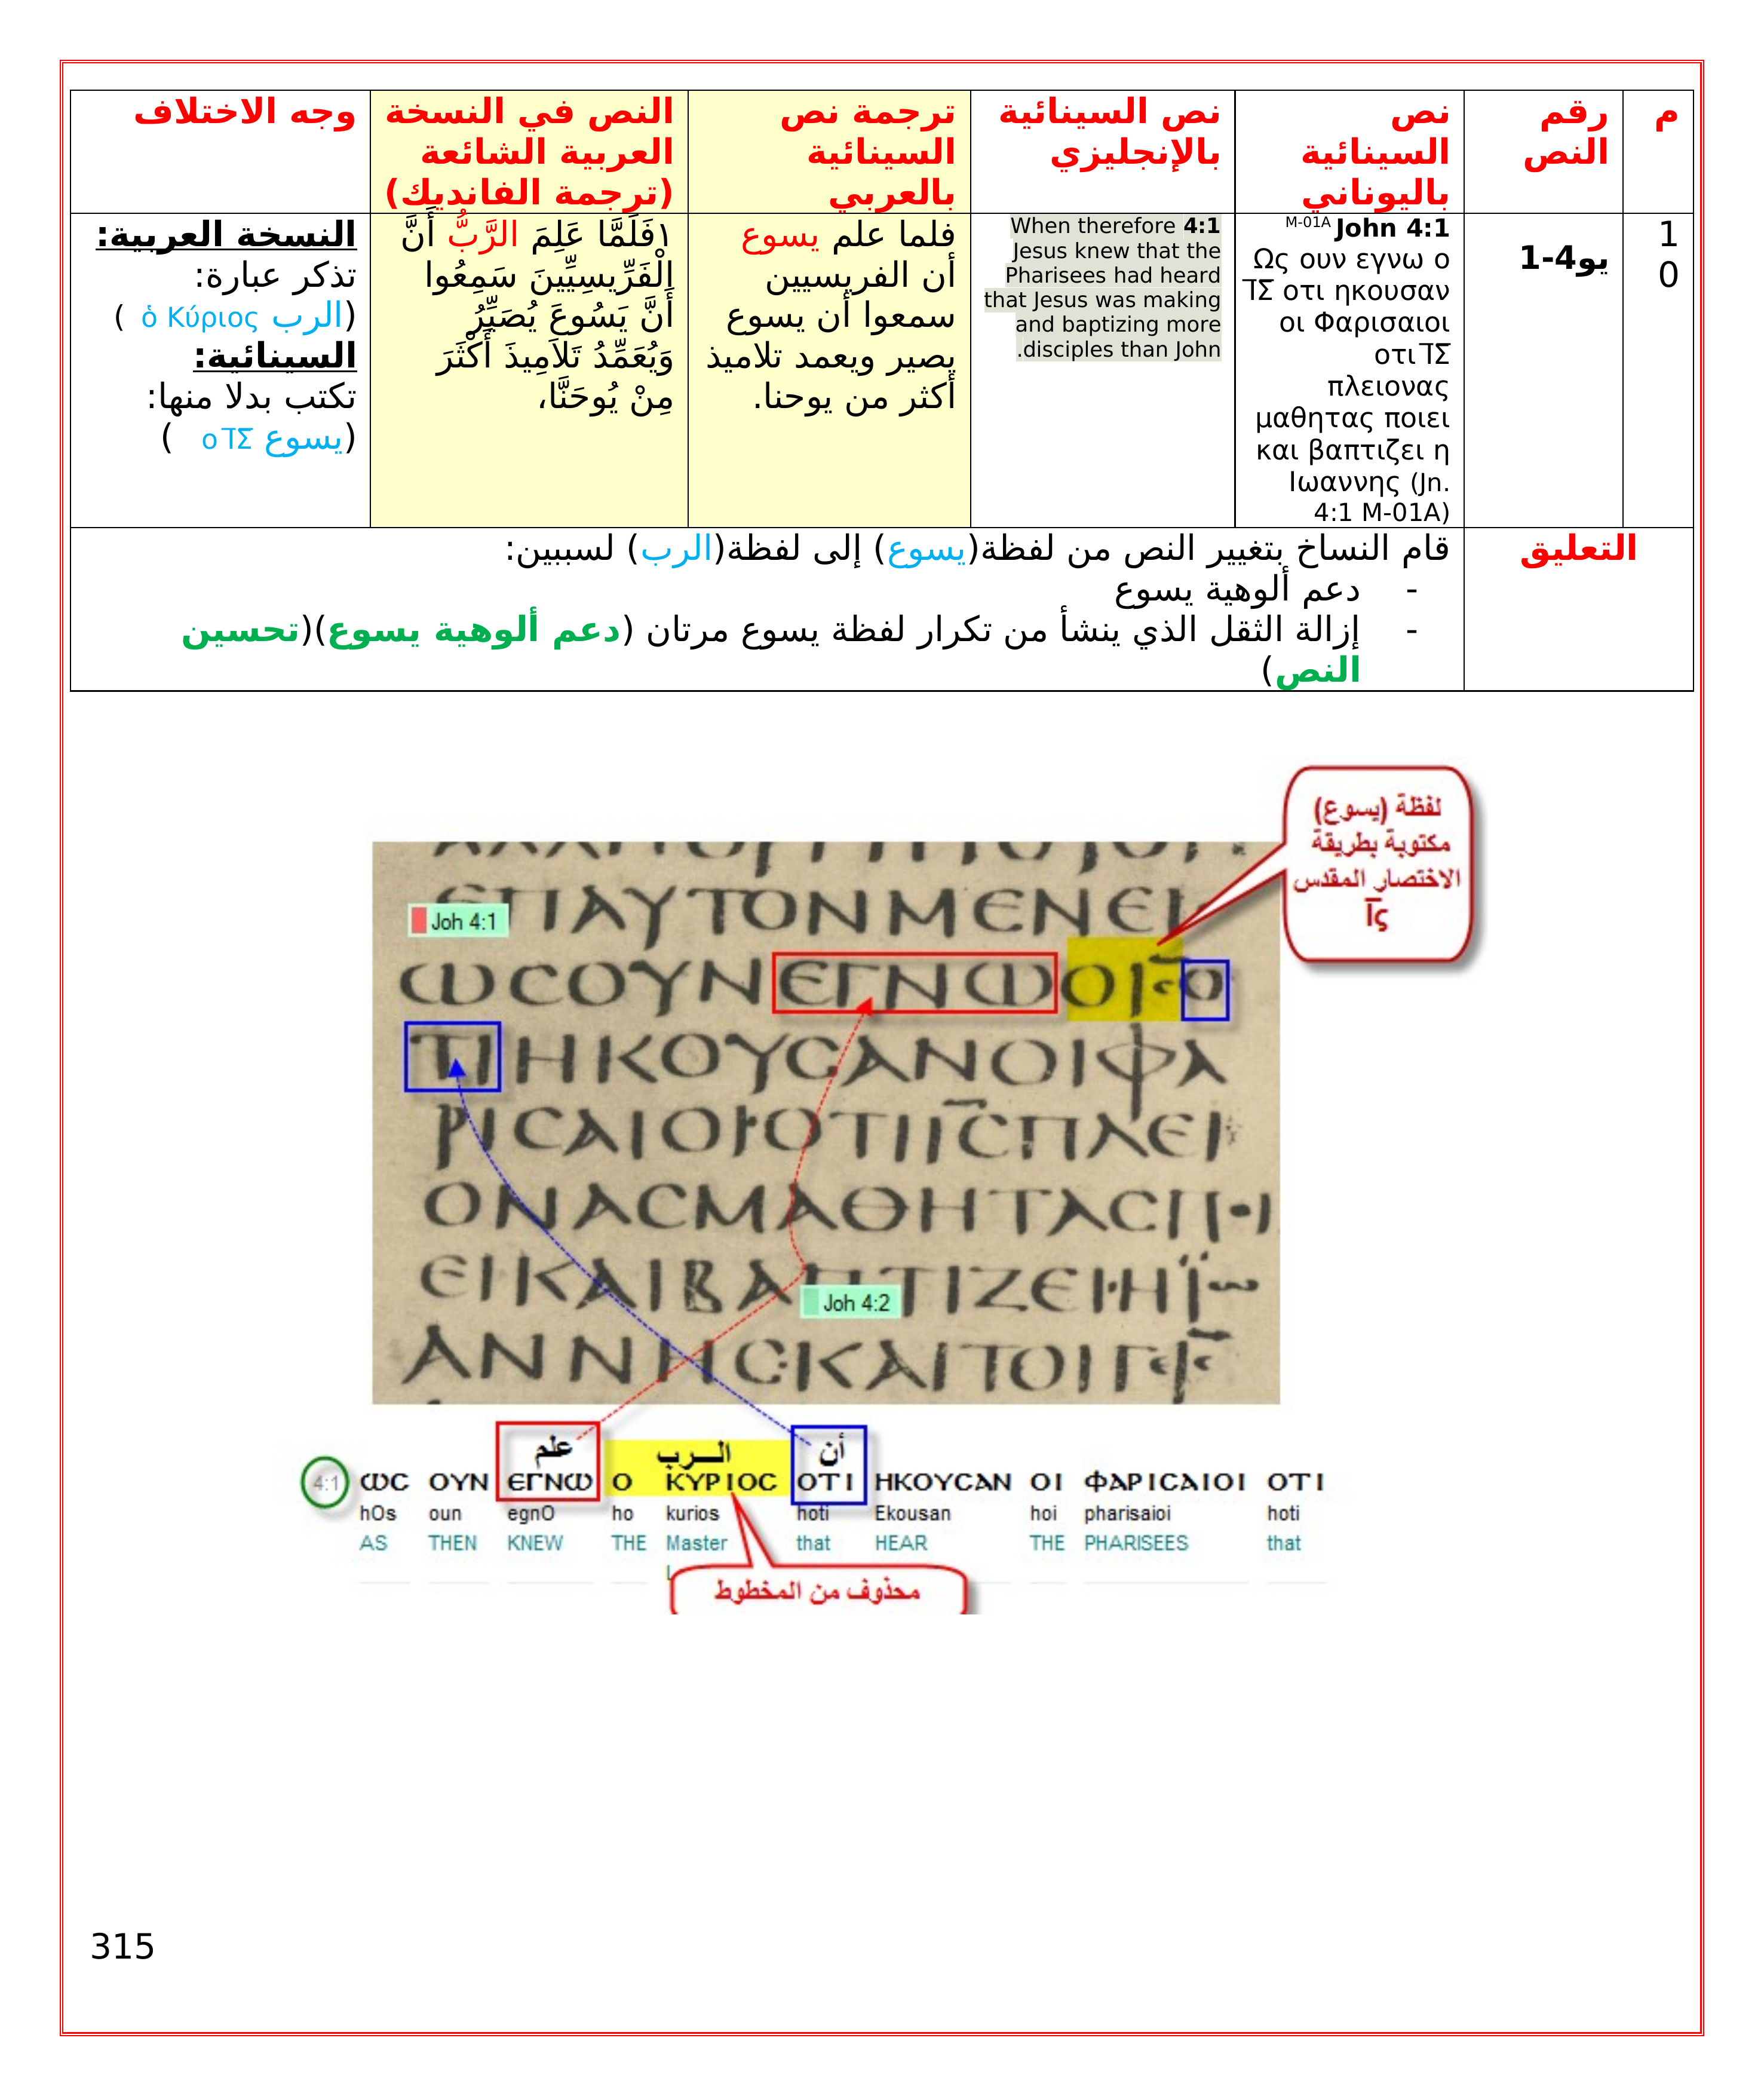 م
رقم
النص
نص
السينائية
باليوناني
نص السينائية
بالإنجليزي
ترجمة نص
السينائية
بالعربي
النص في النسخة
العربية الشائعة
(ترجمة الفانديك)
وجه الاختلاف
1
0
يو4-1
M-01A John 4:1
Ως ουν εγνω ο
ΙΣ̅ οτι ηκουσαν
οι Φαρισαιοι
οτι ΙΣ̅
πλειονας
μαθητας ποιει
και βαπτιζει η
Ιωαννης (Jn.
4:1 M-01A)
When therefore 4:1
Jesus knew that the
Pharisees had heard
that Jesus was making
and baptizing more
.disciples than John
فلما علم يسوع
أن الفريسيين
سمعوا أن يسوع
يصير ويعمد تلاميذ
أكثر من يوحنا.
١فَلَمَّا عَلِمَ الرَّبُّ أَنَّ
الْفَرِّيسِيِّينَ سَمِعُوا
أَنَّ يَسُوعَ يُصَيِّرُ
وَيُعَمِّدُ تَلاَمِيذَ أَكْثَرَ
مِنْ يُوحَنَّا،
النسخة العربية:
تذكر عبارة:
(الرب ὁ Κύριος )
السينائية:
تكتب بدلا منها:
(يسوع ο ΙΣ̅ )
التعليق
قام النساخ بتغيير النص من لفظة(يسوع) إلى لفظة(الرب) لسببين:
- دعم ألوهية يسوع
- إزالة الثقل الذي ينشأ من تكرار لفظة يسوع مرتان (دعم ألوهية يسوع)(تحسين
النص)
لفظة (يسوع)
مكتوبة بطريقة
الاختصار المقدس
ΙΣ̅
Joh 4:1
ЄΠΑΥΤΟΝΜЄΝЄΙ
ωϹΟΥΝЄΓΝωΟΙϹΟ
ΤΙΗΚΟΥϹΑΝΟΙΦΑ
ΡΙϹΑΙΟΙΟΤΙΙϹΠΛЄΙ
ΟΝΑϹΜΑΘΗΤΑϹΠΟΙ
ЄΙΚΑΙΒΑΠΤΙΖЄΙΗΙω
Joh 4:2
ΑΝΝΗϹΚΑΙΤΟΙΓЄΙϹ
علم
الـــرب
أن
4:1 ωϹ ΟΥΝ ЄΓΝω Ο ΚΥΡΙΟϹ ΟΤΙ ΗΚΟΥϹΑΝ ΟΙ ΦΑΡΙϹΑΙΟΙ ΟΤΙ
hOs oun egnO ho kurios hoti Ekousan hoi pharisaioi hoti
AS THEN KNEW THE Master that HEAR THE PHARISEES that
محذوف من المخطوط
315